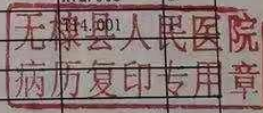 114.001
无棣县人民医院
病历复印专用章